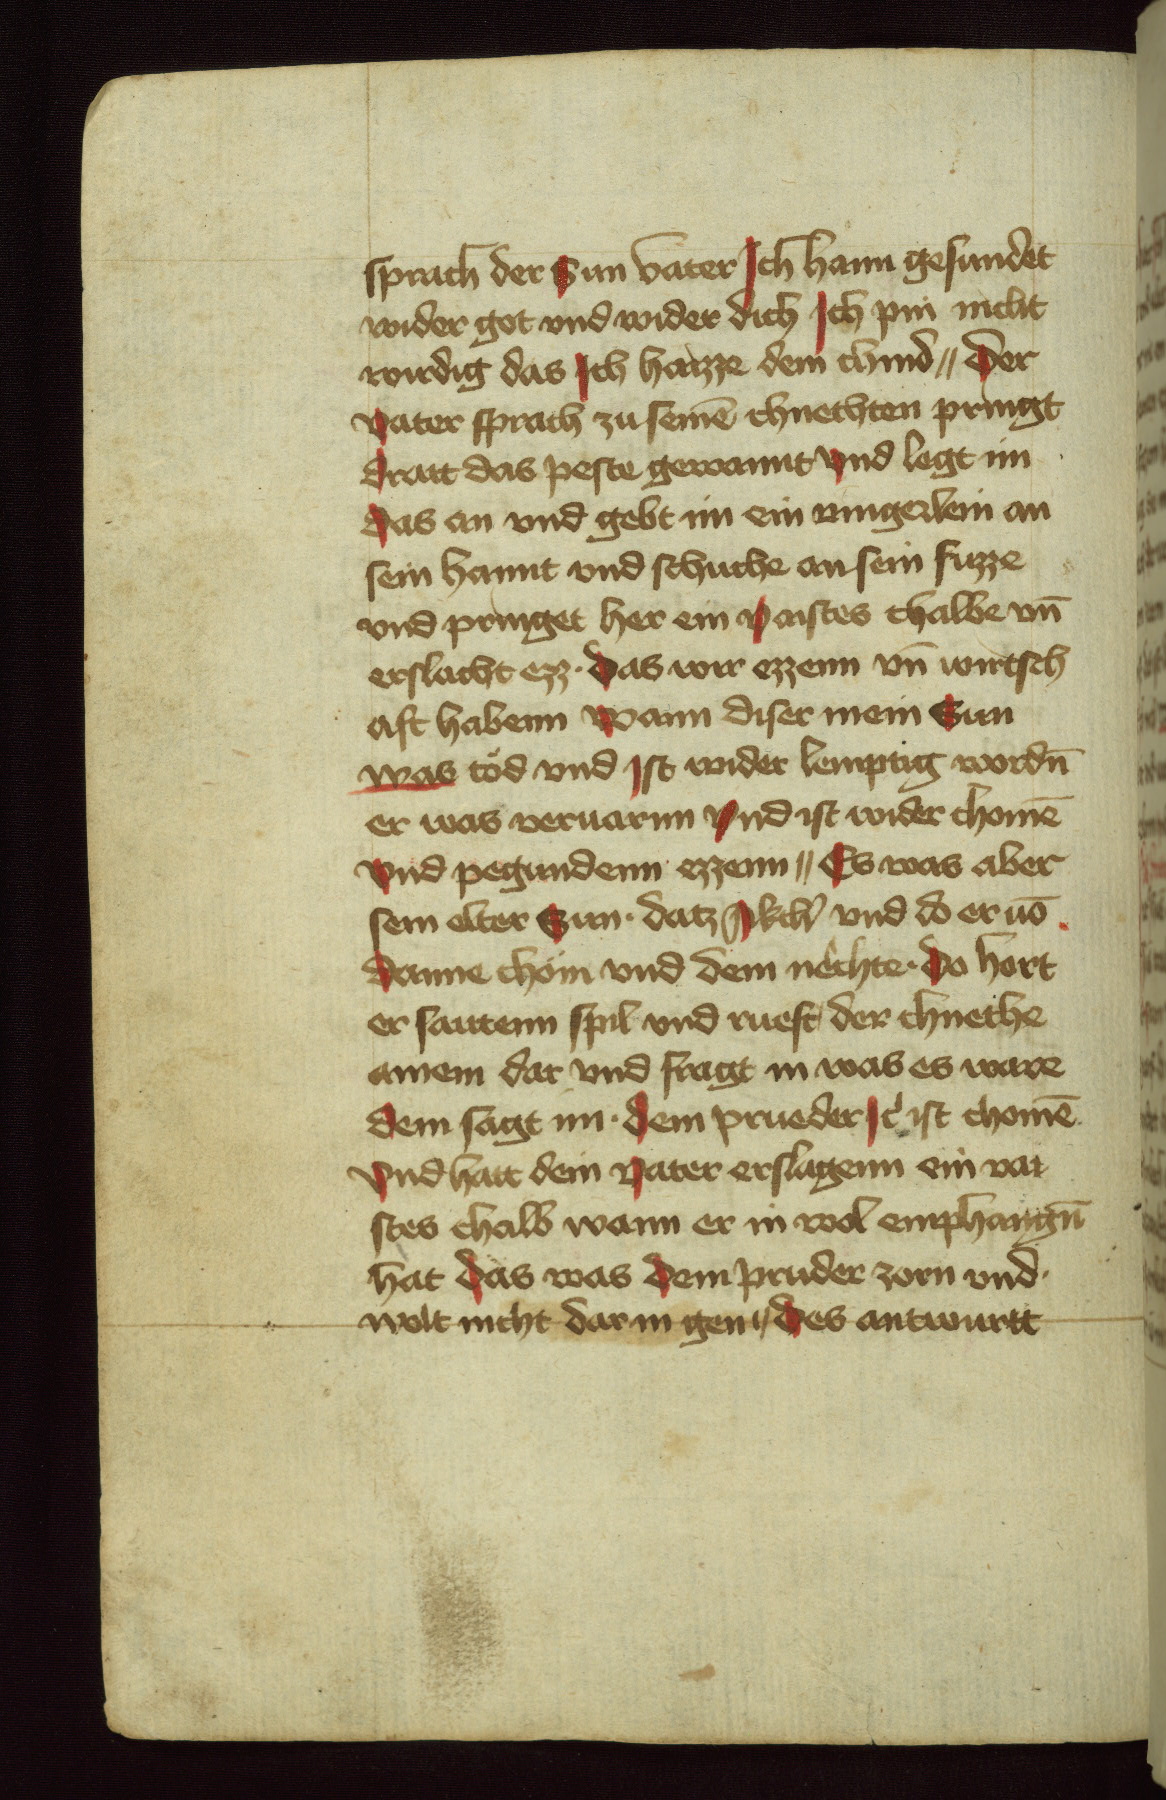 sprach der Sun Vater Ich hann gesundet
wider got vnd wider dich Ich pin nicht
wirdig das Ich hazze dein chind // Der
Vater sprach zu seinē chnechten pringt
dratt das peste gewannt Vnd legt im
Das an vnd gebt im ein vingerlein an
sein hannt vnd schuche an sein fuzze
vnd pringet her ein Vaistes chalbe vn̄
erslacht ezz · Das wir ezzenn vn̄ wirtsch
aft habenn Wann diser mein Sun
was tod vnd Ist wider lemptig wordn̄
er was veruarnn Vnd ist wider chomē
Vnd pegundenn ezzenn // Es was aber
sein elter Sun · datz vnd do er uō
Danne chom vnd dem nechte · Do hort
er sautenn spil vnd rueft der chnethe
ainem dar vnd fragt in was es ware
Dem sagt im · Dein prueder ist chomē
Vnd hatt dein Vater erslagenn ein vai
stes chalb wann er in wol emphangn̄
hat Das was Dem pruder zorn vnd ·
wolt nicht dar in gen // Des antwurtt